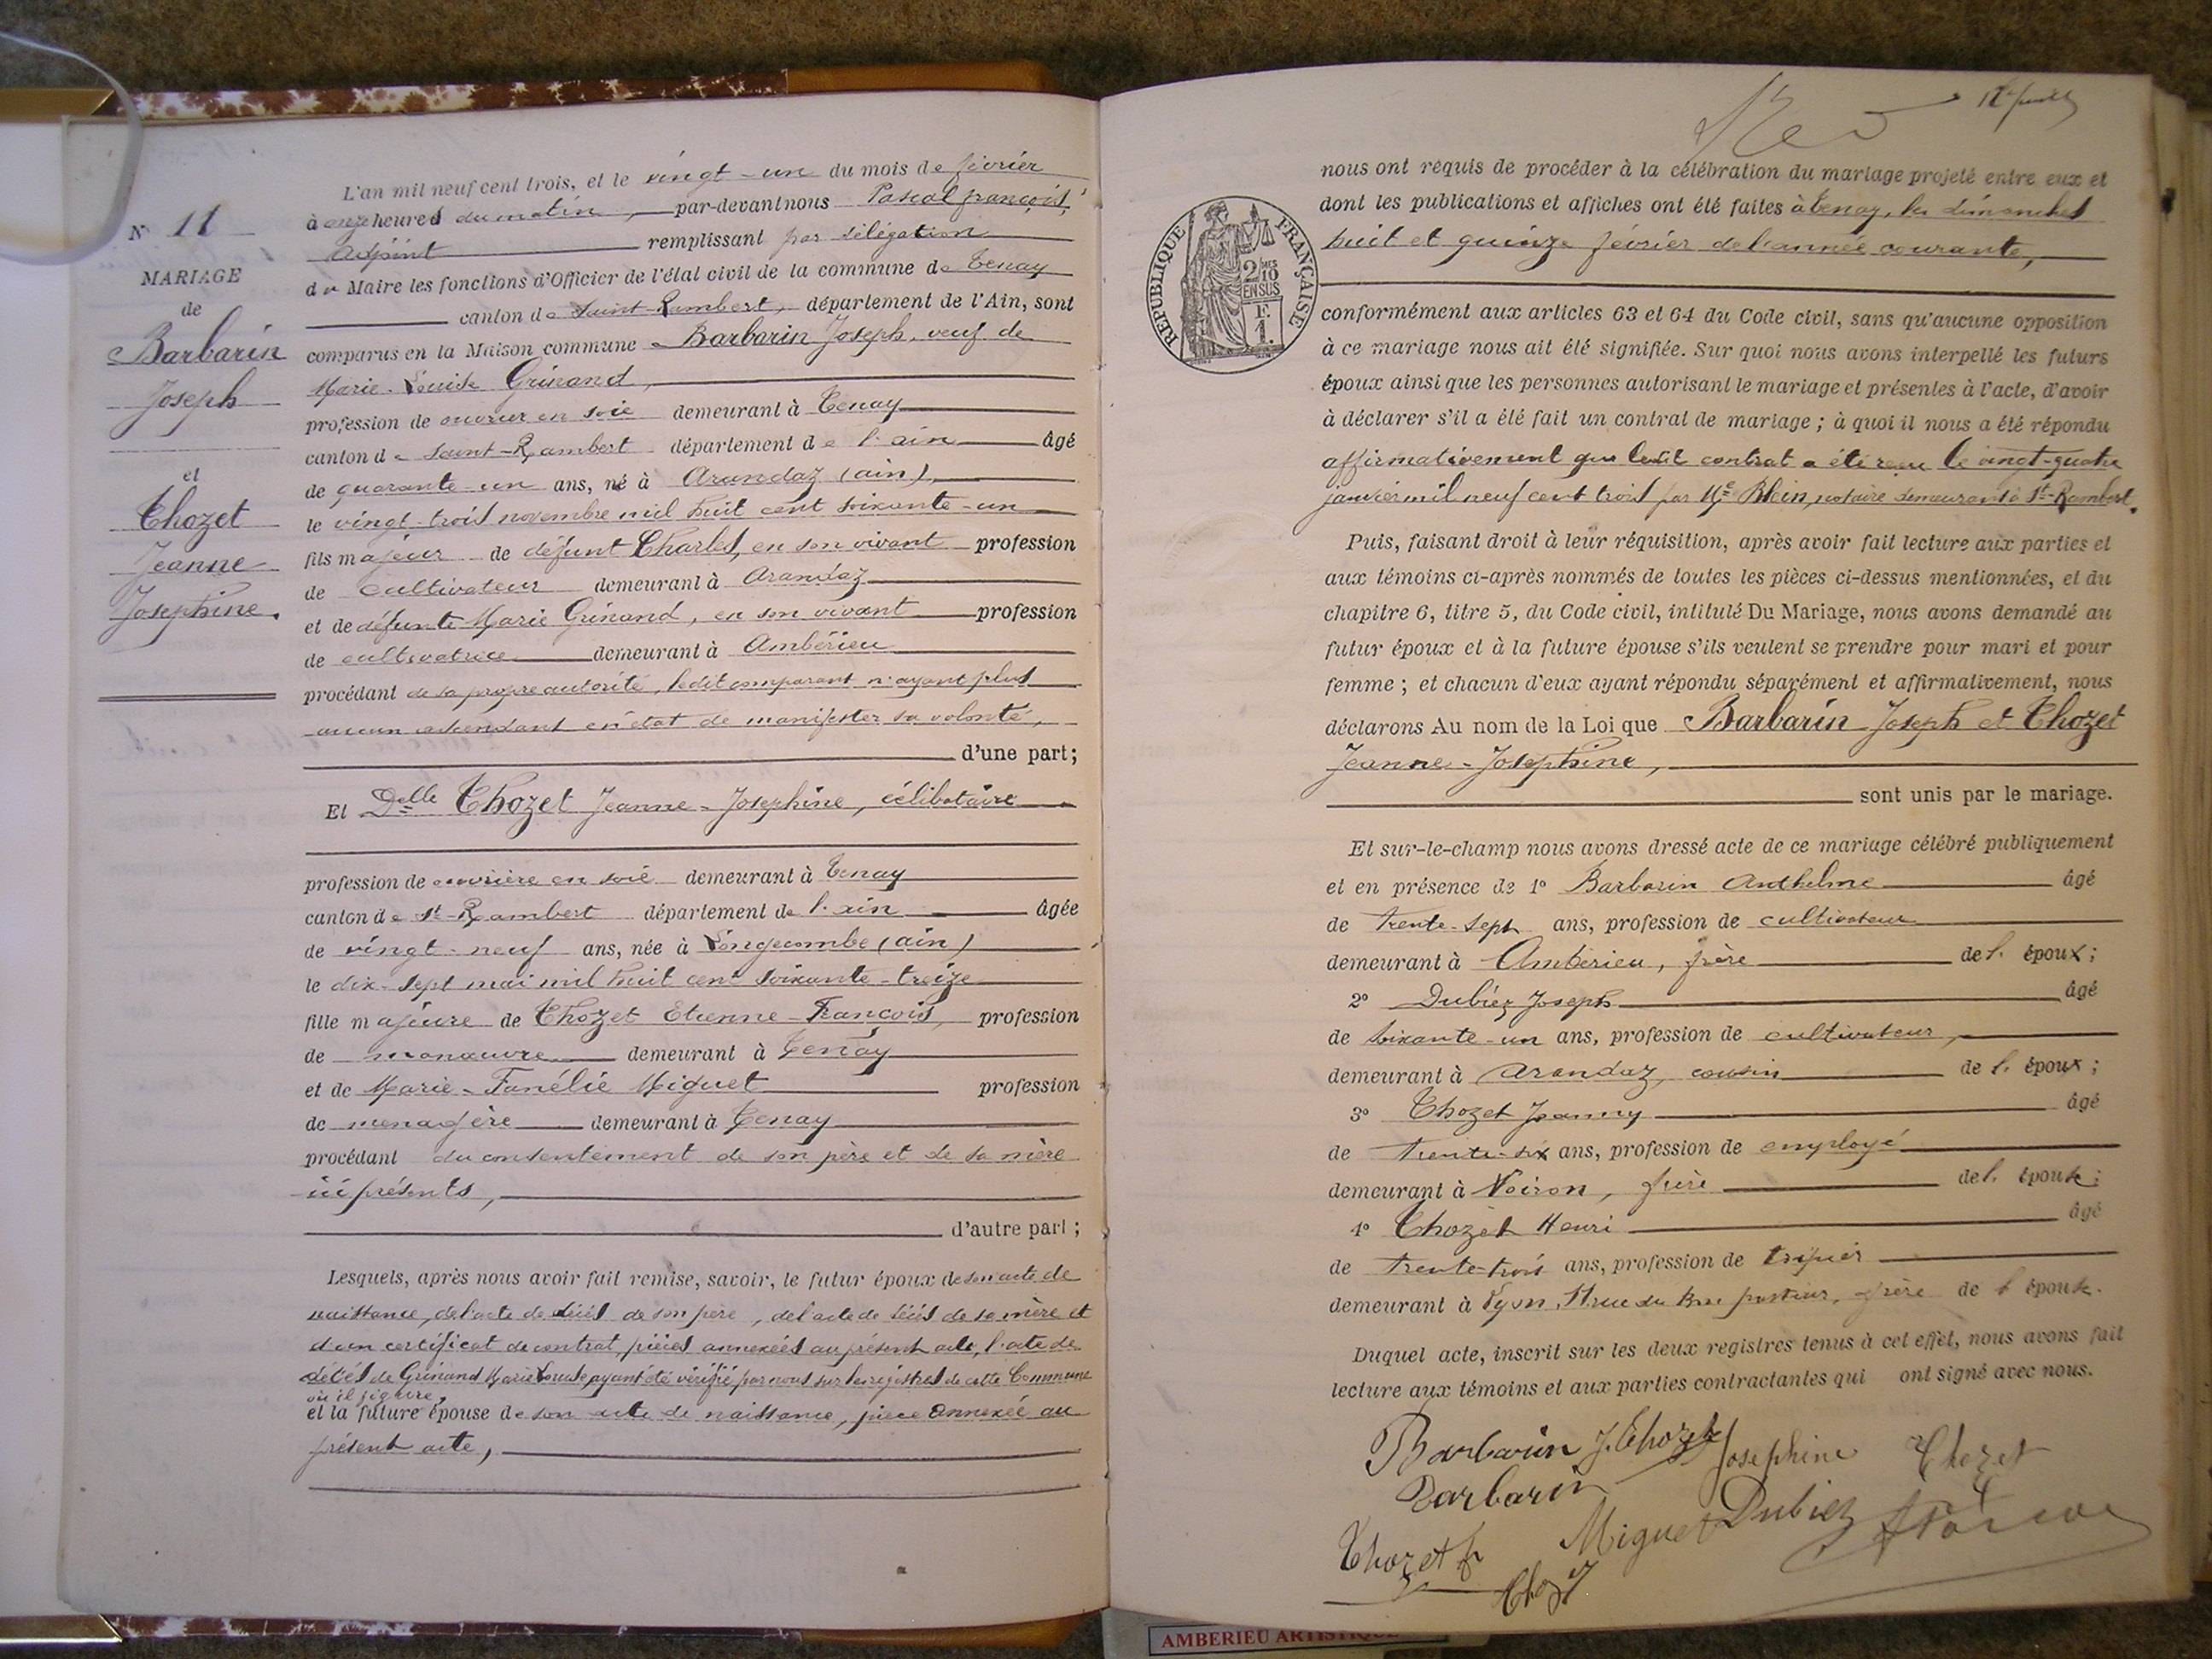 N° 11
MARIAGE
de
Barbarin
Joseph
et
Chozet
Jeanne
Josephine.
L'an mil neuf cent trois, et le vingt-un du mois de février
à onze heures du matin, par-devant nous Pascal françois,
adjoint remplissant par délégation
du Maire les fonctions d'Officier de l'état civil de la commune de Tenay
canton de Saint-Rambert, département de l'Ain, sont
comparus en la Maison commune Barbarin Joseph, veuf de
Marie-Louise Grinand,
profession de ouvrier en soie demeurant à Tenay
canton de Saint-Rambert département de l'ain âgé
de quarante-un ans, né à Arandaz (ain),
le vingt-trois novembre mil huit cent soixante-un
fils majeur de défunt Charles, en son vivant profession
de cultivateur demeurant à Arandaz
et de défunte Marie Grinand, en son vivant profession
de cultivatrice demeurant à Ambérieu
procédant de sa propre autorité, ledit comparant n'ayant plus
aucun ascendant en état de manifester sa volonté,
d'une part;
Et Delle Chozet Jeanne-Josephine, célibataire
profession de ouvrière en soie demeurant à Tenay
canton de St-Rambert département de l'ain âgée
de vingt-neuf ans, née à Longecombe (ain)
le dix-sept mai mil huit cent soixante-treize
fille majeure de Chozet Etienne-François, profession
de manœuvre demeurant à Tenay
et de Marie-Fanélie Miguet profession
de menagère demeurant à Tenay
procédant du consentement de son père et de sa mère
ici présents,
d'autre part;
Lesquels, après nous avoir fait remise, savoir, le futur époux de son acte de
naissance, de l'acte de décès de son père, de l'acte de décès de sa mère et
d'un certificat de contrat, pièces annexées au présent acte, l'acte de
décès de Grinand Marie Louise ayant été vérifié par nous sur les registres de cette Commune
où il figure,
et la future épouse de son acte de naissance, pièce annexée au
présent acte,
nous ont requis de procéder à la célébration du mariage projeté entre eux et
dont les publications et affiches ont été faites à Tenay, les dimanches
huit et quinze février de l'année courante,
RÉPUBLIQUE FRANÇAISE
2/10
EN SUS
F.
1.
conformément aux articles 63 et 64 du Code civil, sans qu'aucune opposition
à ce mariage nous ait été signifiée. Sur quoi nous avons interpellé les futurs
époux ainsi que les personnes autorisant le mariage et présentes à l'acte, d'avoir
à déclarer s'il a été fait un contrat de mariage; à quoi il nous a été répondu
affirmativement que ledit contrat a été reçu le vingt-quatre
janvier mil neuf cent trois par Me Blein, notaire demeurant à St-Rambert.
Puis, faisant droit à leur réquisition, après avoir fait lecture aux parties et
aux témoins ci-après nommés de toutes les pièces ci-dessus mentionnées, et du
chapitre 6, titre 5, du Code civil, intitulé Du Mariage, nous avons demandé au
futur époux et à la future épouse s'ils veulent se prendre pour mari et pour
femme; et chacun d'eux ayant répondu séparément et affirmativement, nous
déclarons Au nom de la Loi que Barbarin Joseph et Chozet
Jeanne-Josephine,
sont unis par le mariage.
Et sur-le-champ nous avons dressé acte de ce mariage célébré publiquement
et en présence de 1° Barbarin Anthelme âgé
de trente-sept ans, profession de cultivateur
demeurant à Ambérieu, frère de l'époux;
2° Dubiez Joseph âgé
de soixante-un ans, profession de cultivateur,
demeurant à Arandaz, cousin de l'époux;
3° Chozet Joanny âgé
de trente-six ans, profession de employé
demeurant à Voiron, frère de l'épouse;
4° Chozet Henri âgé
de trente-trois ans, profession de tripier
demeurant à Lyon, rue du frère de l'épouse.
Duquel acte, inscrit sur les deux registres tenus à cet effet, nous avons fait
lecture aux témoins et aux parties contractantes qui ont signé avec nous.
Barbarin J. Chozet Josephine Chozet
Barbarin
Chozet Miguet Dubiez
AMBERIEU ARTISTIQUE